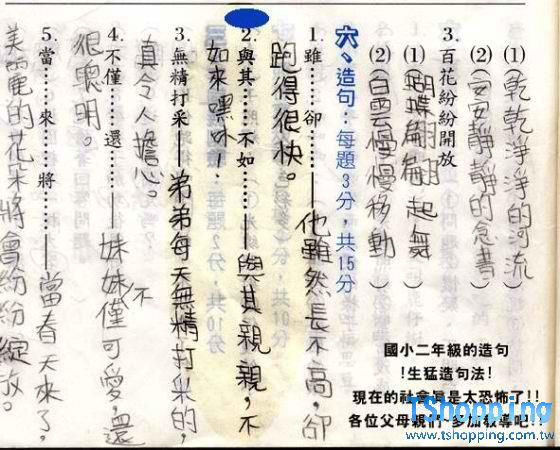 (1)(乾乾淨淨的河流)
(2)(安安靜靜的念書)
3.百花紛紛開放
(1)(蝴蝶翩翩起舞)
(2)(白雲慢慢移動)
六、造句：每題3分，共15分
1.雖……卻……——他雖然長不高，卻
跑得很快。
2.與其……不如……——與其親親，不
如來嘿咻！
3.無精打采——弟弟每天無精打采的，
真令人擔心。
4.不僅……還……——妹妹不僅可愛，還
很聰明。
5.當……來……將……——當春天來了。
美麗的花朵將會紛紛綻放。
國小二年級的造句
!生猛造句法!
現在的社會真是太恐怖了!!
各位父母親們~多加教導吧!!
TShopping
www.tshopping.com.tw